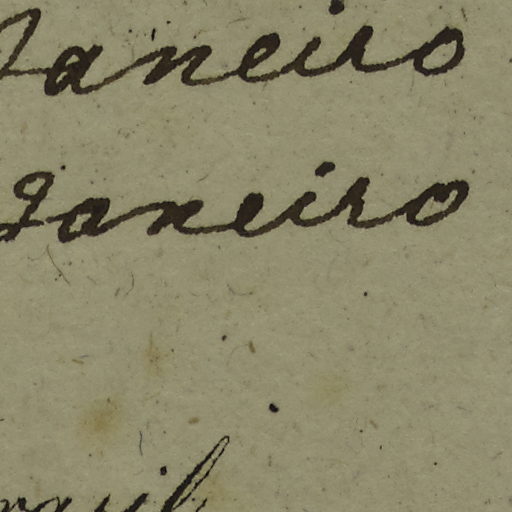 Janeiro
Janeiro